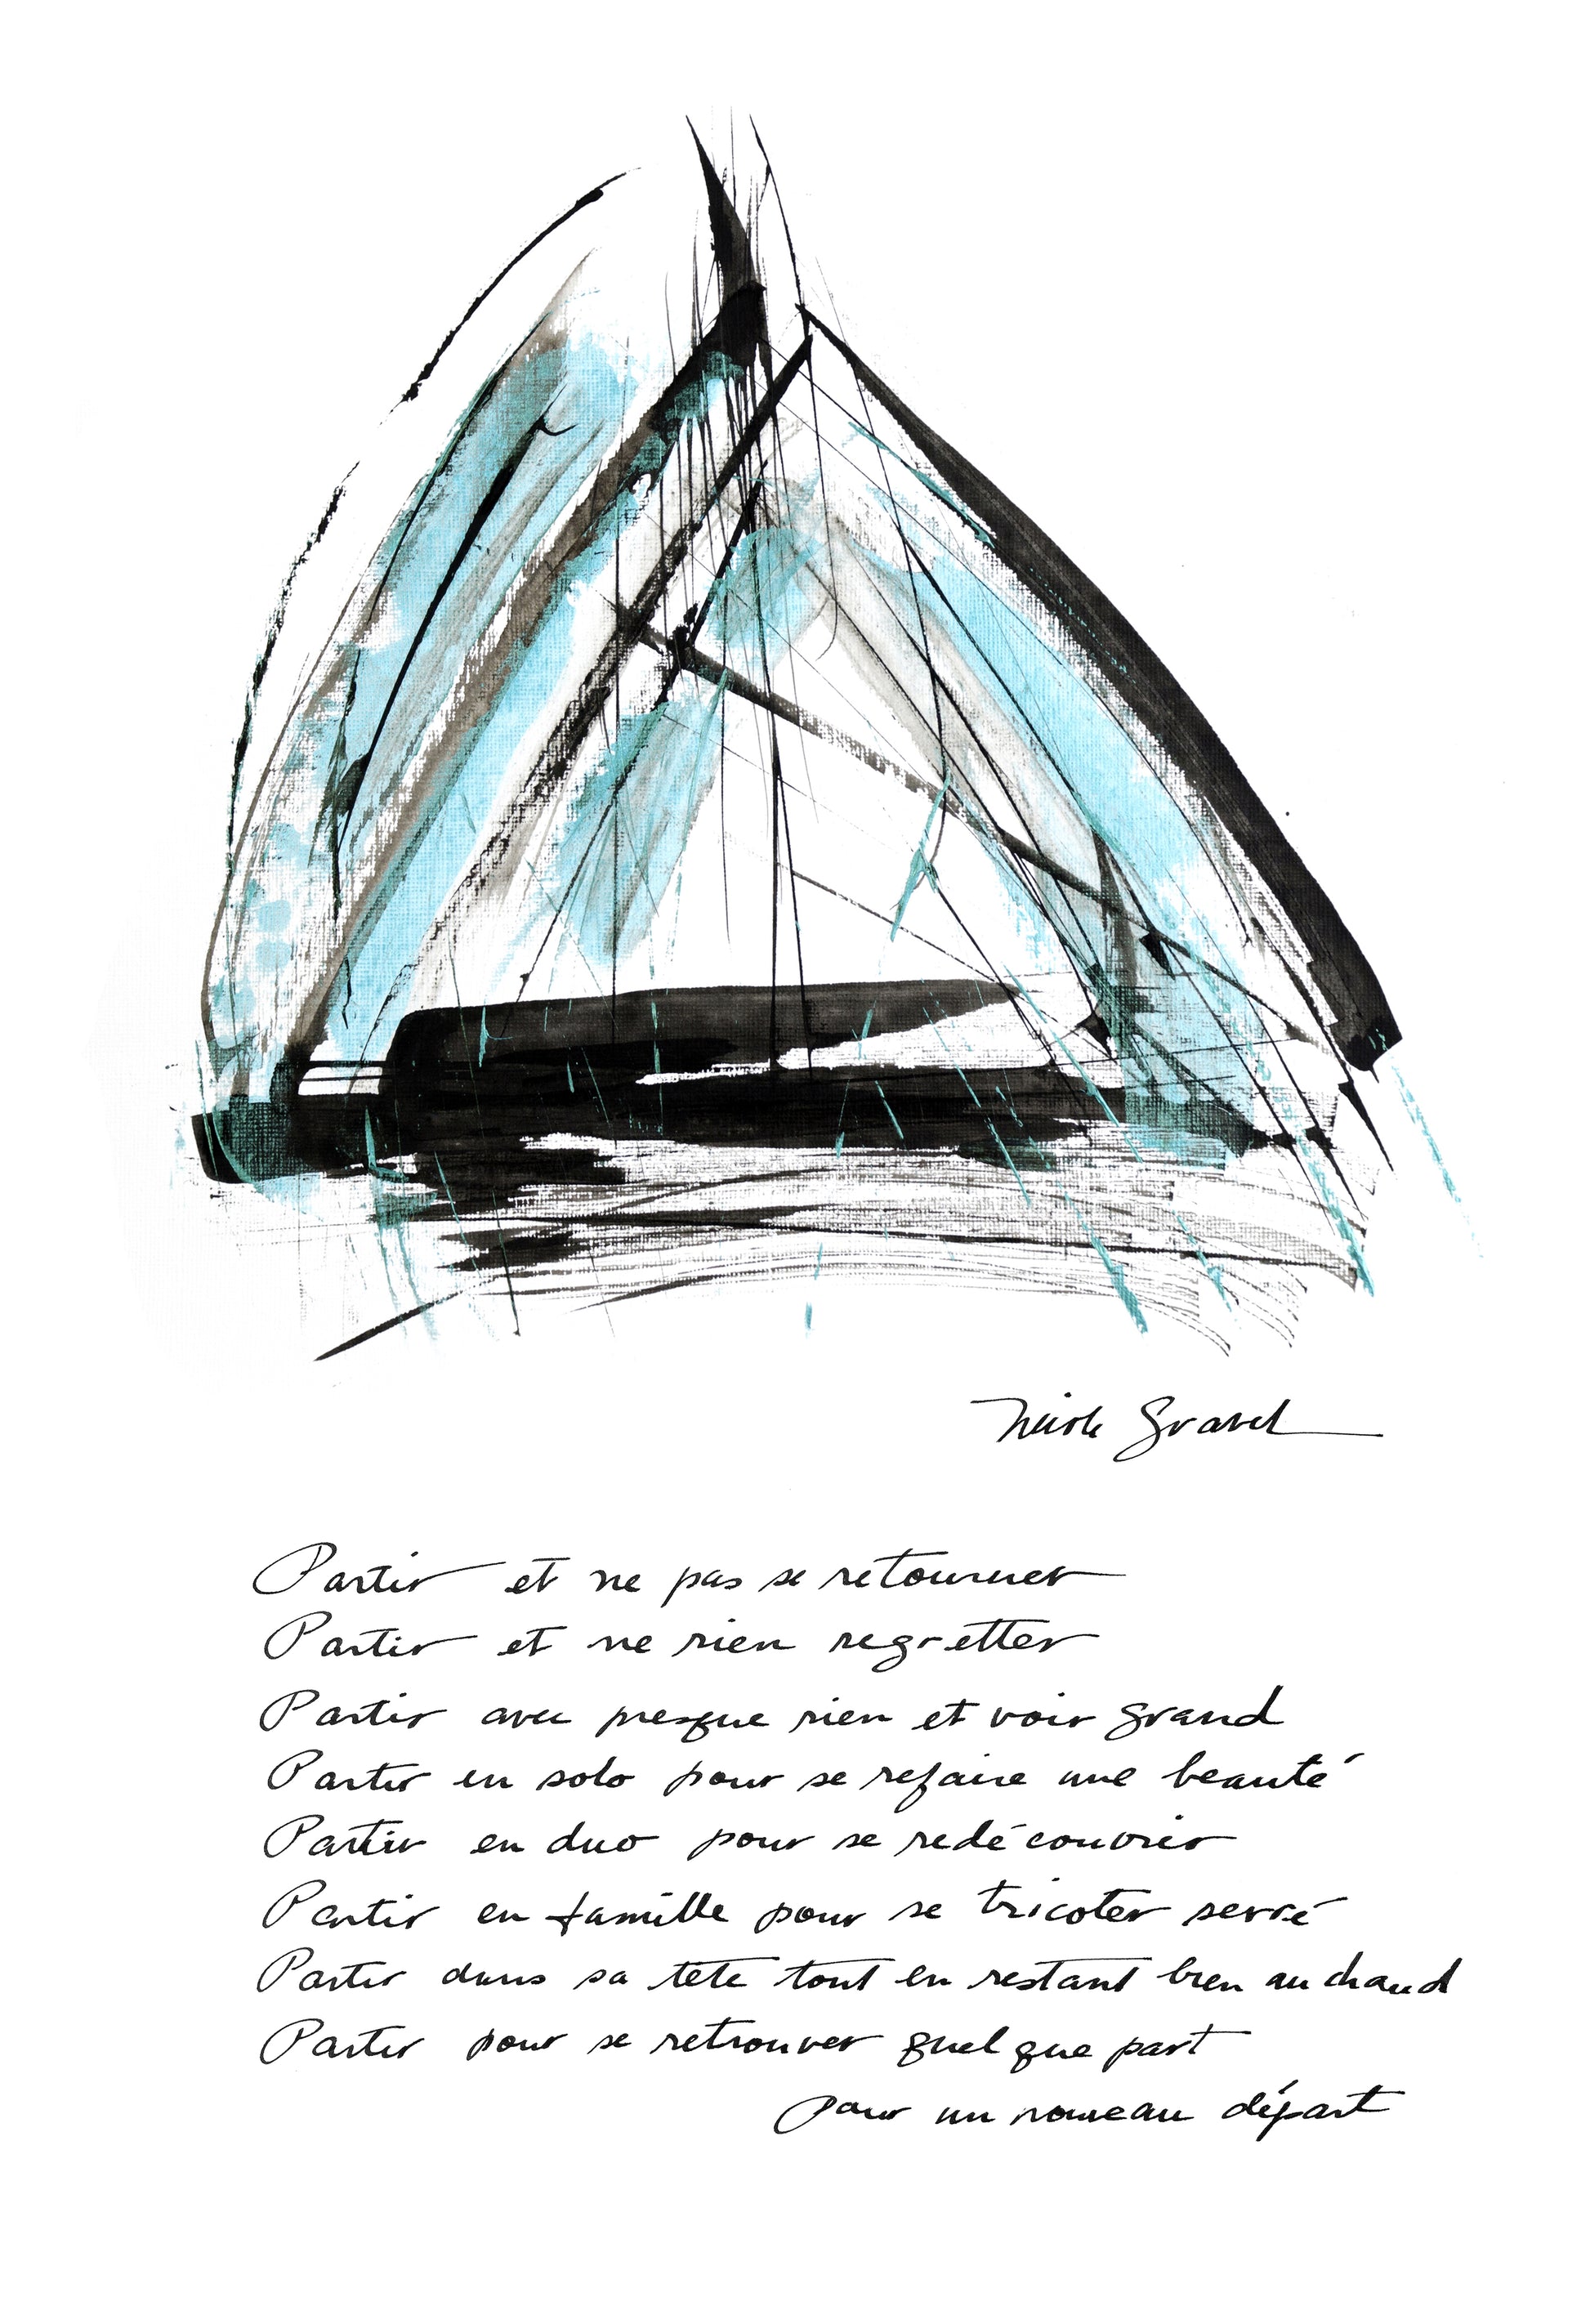 Nicole Gravel
Partir et ne pas se retourner
Partir et ne rien regretter
Partir avec presque rien et voir grand
Partir en solo pour se refaire une beauté
Partir en duo pour se redécouvrir
Partir en famille pour se tricoter serré
Partir dans sa tête tout en restant bien au chaud
Partir pour se retrouver quelque part
pour un nouveau départ